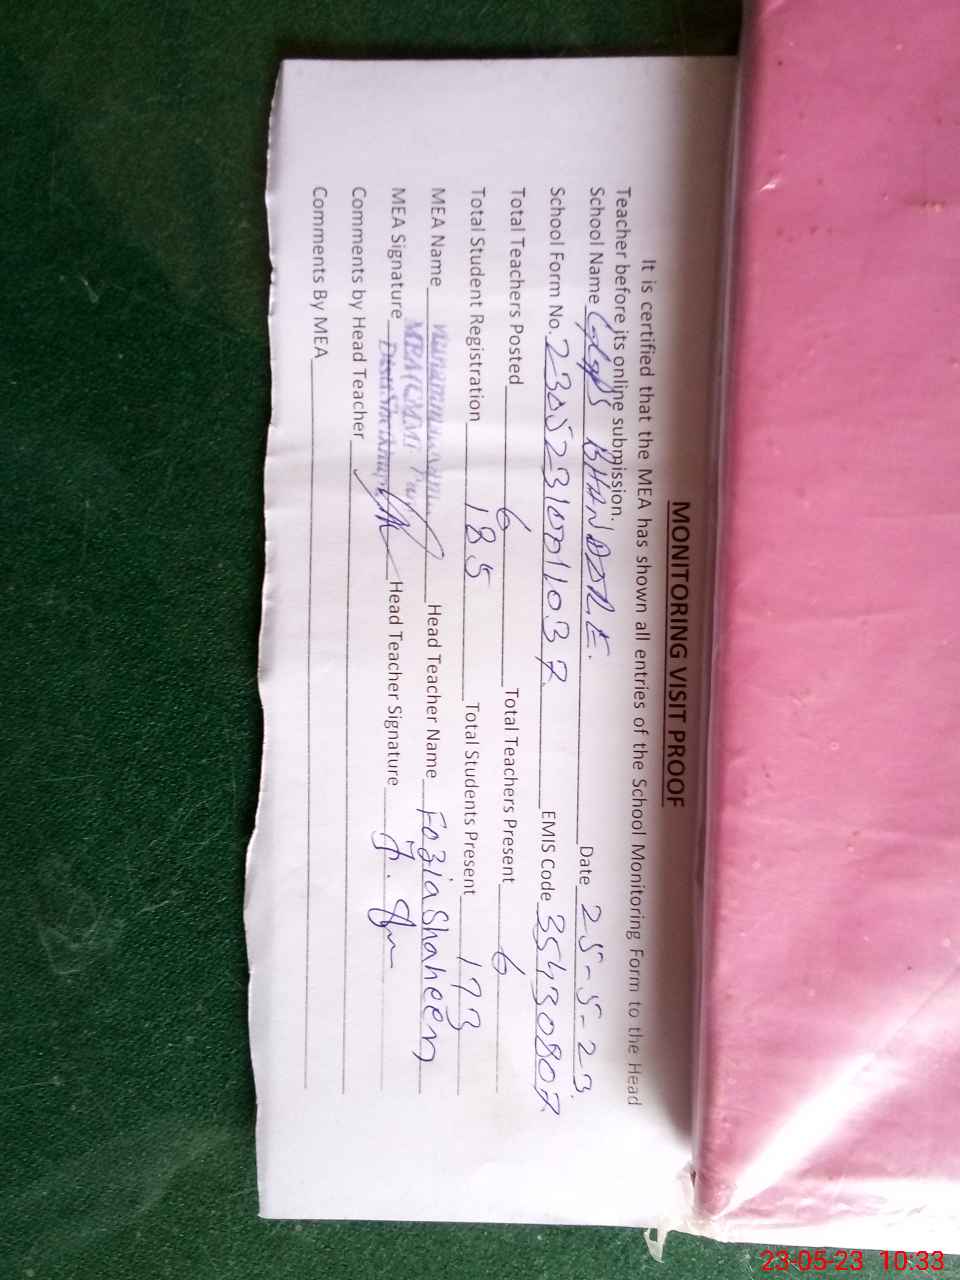 MONITORING VISIT PROOF
It is certified that the MEA has shown all entries of the School Monitoring Form to the Head
Teacher before its online submission.
School Name GGPS BHANDORE. Date 25-5-23
School Form No. 23052310011037 EMIS Code 35430807
Total Teachers Posted 6 Total Teachers Present 6
Total Student Registration 185 Total Students Present 173
MEA Name Head Teacher Name Fozia Shaheen
MEA Signature Head Teacher Signature
Comments by Head Teacher
Comments By MEA
23-05-23 10:33